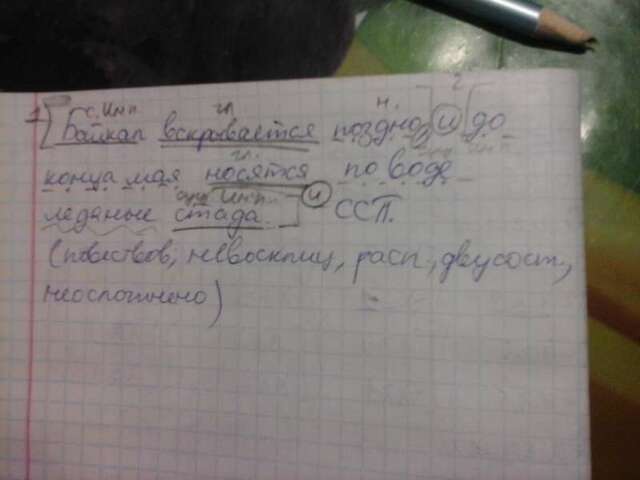 1 2
с. И.п. гл. н.
[Байкал вскрывается поздно] и [до
гл.
конца мая носятся по воде
сущ И.п. и
ледяные стада.] ССП.
(повествов, невосклиц, расп, двусост,
неосложнено)